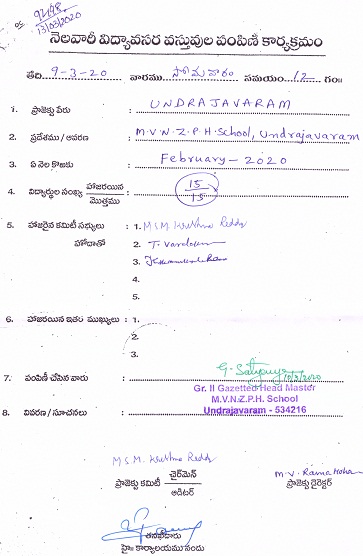 92/48
13/03/2020
నెలవారీ విద్యావసర వస్తువుల పంపిణి కార్యక్రమం
తేది 9-3-20 వారము సోమవారం సమయం 12 గం॥
1. ప్రాజెక్టు పేరు : UNDRAJAVARAM
2. ప్రదేశము / ఆవరణ : M.V.N.Z.P.H.School, Undrajavaram
3. ఏ నెల కొఱకు : February - 2020
4. విద్యార్థుల సంఖ్య హాజరయిన / మొత్తము : 15/15
5. హాజరైన కమిటీ సభ్యులు : 1. M.S.M. Krishna Reddy
హోదాతో 2.
3.
4.
5.
6. హాజరయిన ఇతర ముఖ్యులు : 1.
2.
3.
7. పంపిణీ చేసిన వారు :
Gr. II Gazetted Head Master
M.V.N.Z.P.H. School
8. వివరణ / సూచనలు : Undrajavaram - 534216
M.S.M. Krishna Reddy
ప్రాజెక్టు కమిటీ చైర్‌మెన్ / ఆడిటర్
M.V. Rama Mohan
ప్రాజెక్టు డైరెక్టర్
హైః కార్యాలయము నందు